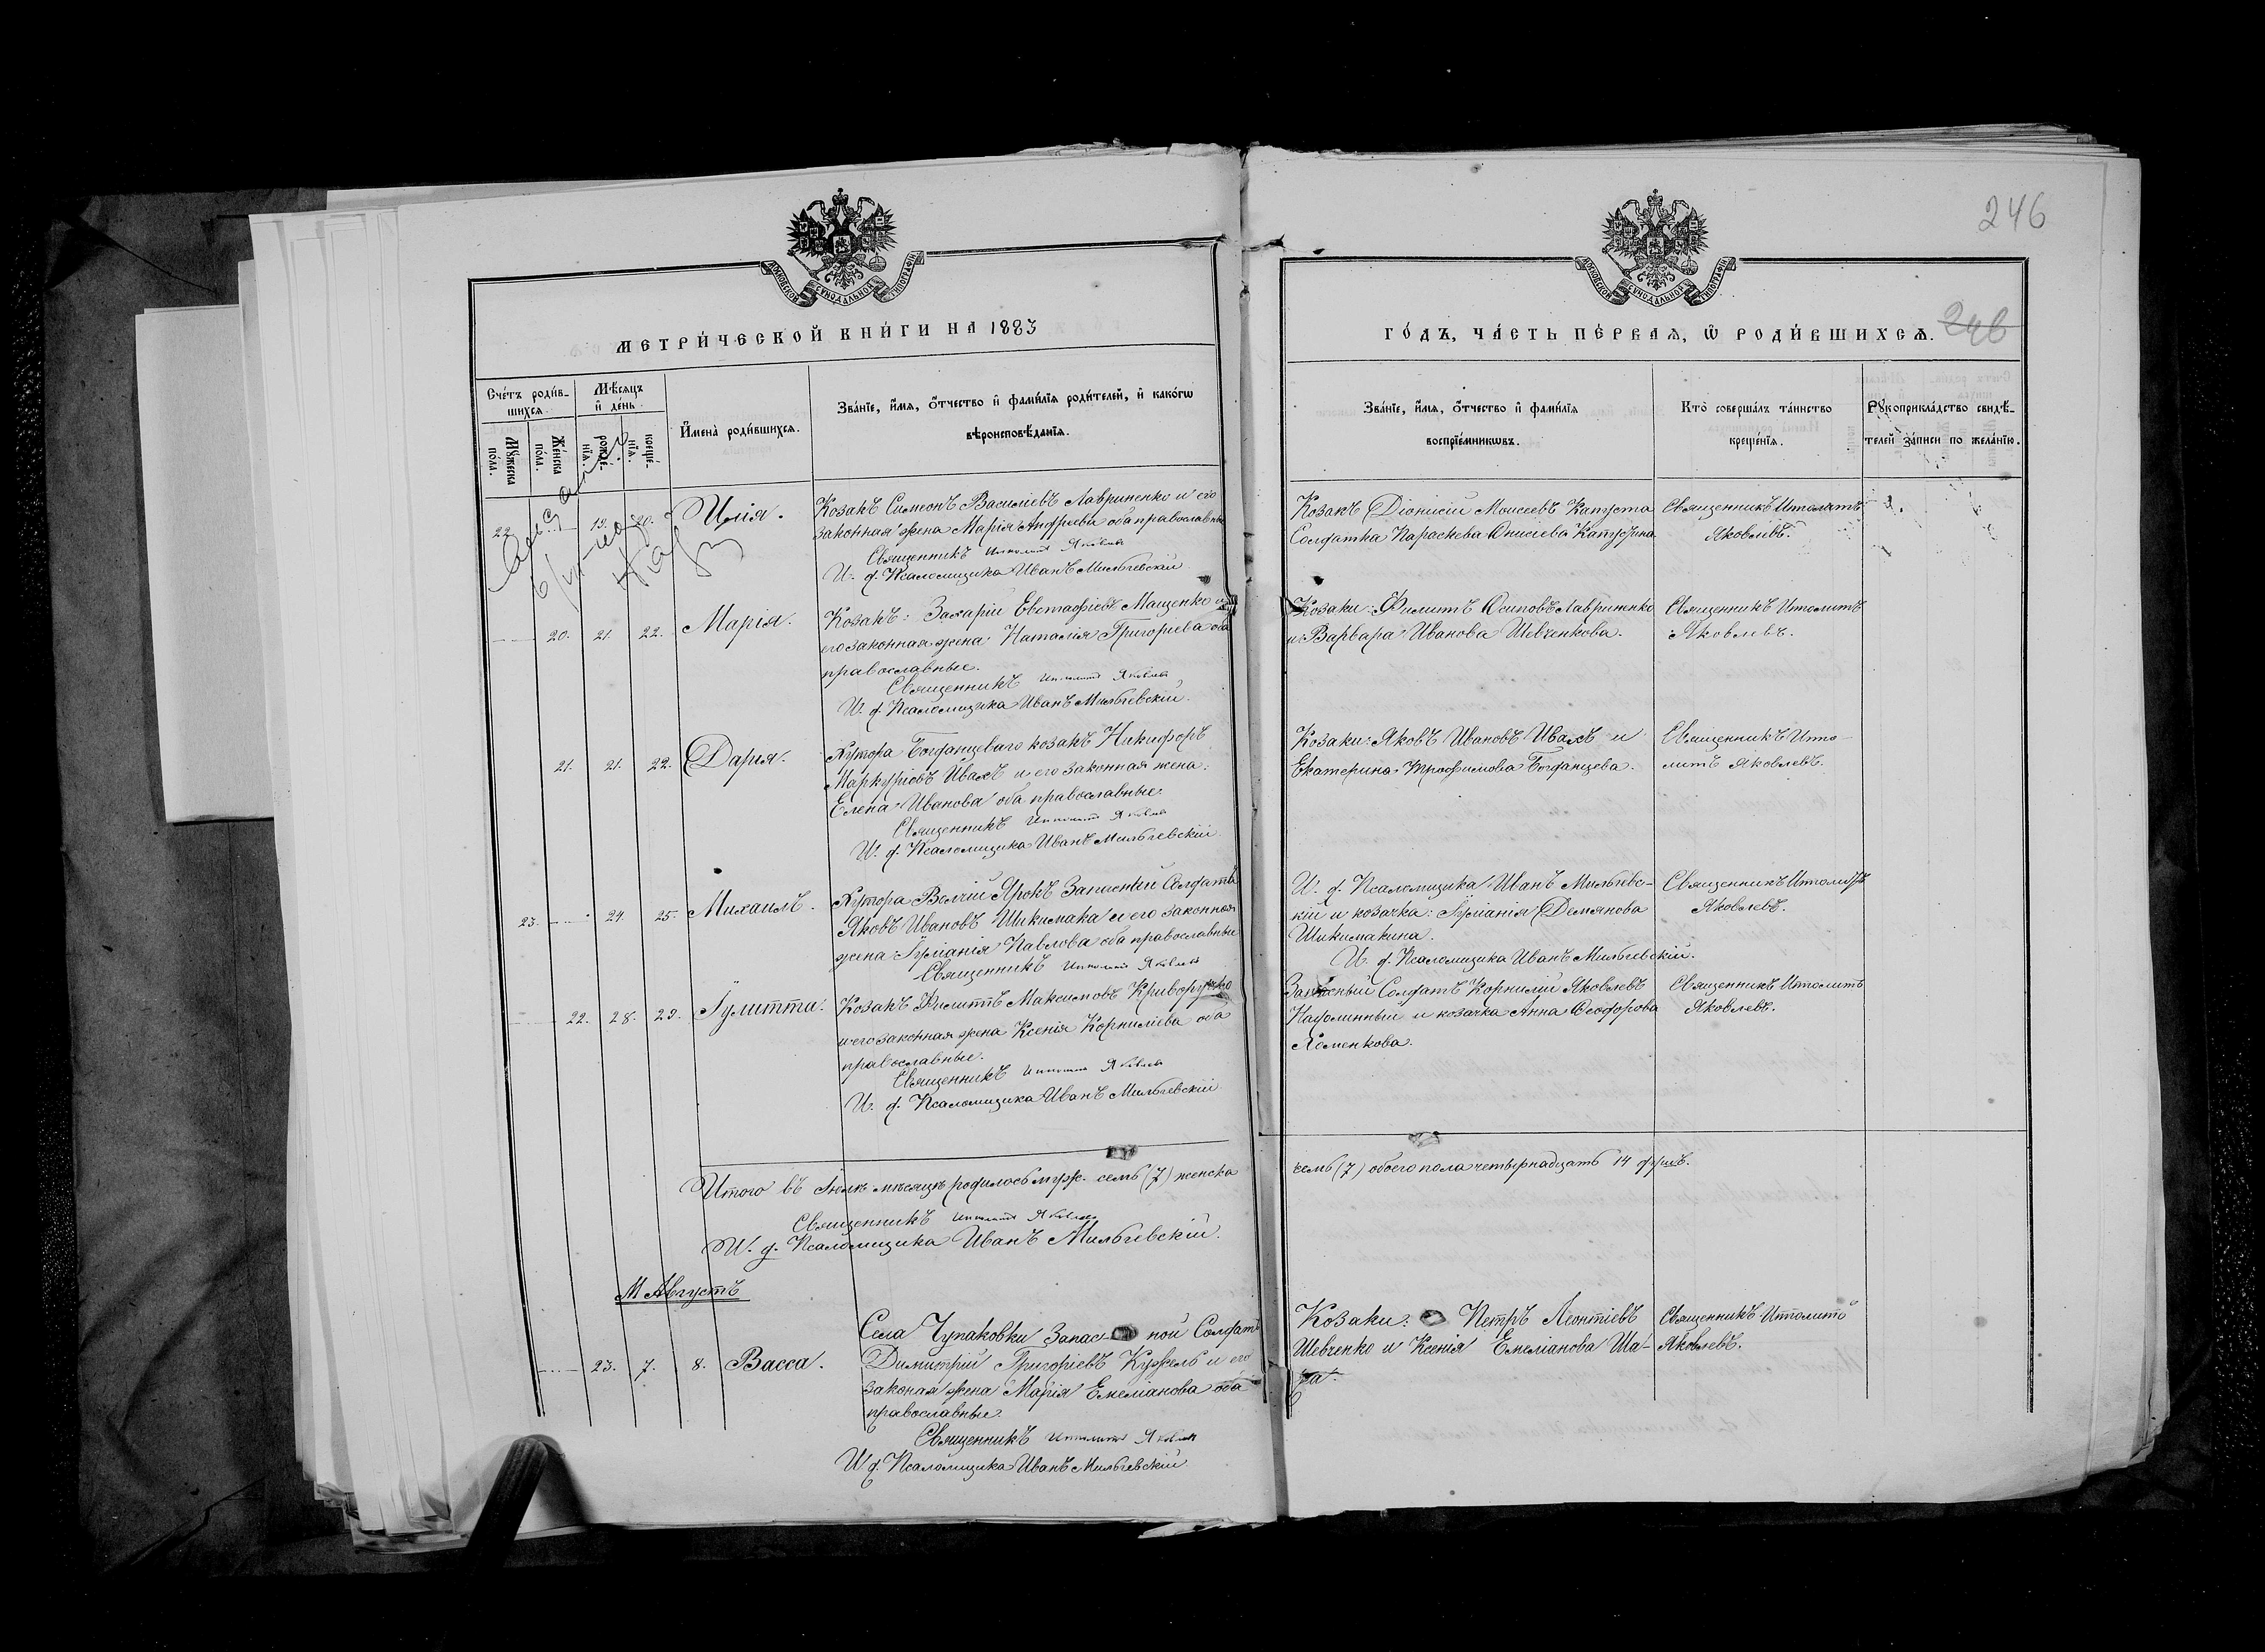 246
МОСКОВСКОЙ СУНОДАЛЬНОЙ ТИПОГРАФІИ
МЕТРИ́ЧЕСКОЙ КНИ́ГИ НА 1883
Сче́тъ роди́в-
шихся.
Мꙋ́жеска по́ла.
Же́нска по́ла.
Мѣ́сяцъ и҆ де́нь.
рожде́-
нїя.
креще́-
нїя.
И҆мена̀ роди́вшихся.
Зва́нїе, и҆́мя, ѻ҆́тчество и҆ фами́лїя роди́телей, и҆ како́гѡ
вѣроисповѣ́данїя.
22. 19. 20. Илія.
Козакъ Симеонъ Василіевъ Лавриненко и его
законная жена Марія Андреева оба православные
Священникъ Ипполитъ Яковлевъ
И. д. Псаломщика Иванъ Мильчевскій
20. 21. 22. Марія.
Козакъ: Захарій Евстафіевъ Мащенко и
его законная жена Наталія Григорьева оба
православные.
Священникъ Ипполитъ Яковлевъ
И. д. Псаломщика Иванъ Мильчевскій.
21. 21. 22. Дарія.
Хутора Богданцеваго козакъ Никифоръ
Меркуріовъ Ивахъ и его законная жена:
Елена Иванова оба православные
Священникъ Ипполитъ Яковлевъ
И. д. Псаломщика Иванъ Мильчевскій
23. 24. 25. Михаилъ.
Хутора Волчій Ярокъ Запасный Солдатъ
Яковъ Ивановъ Шикимака и его законная
жена: Іуліанія Павлова оба православные
Священникъ Ипполитъ Яковлевъ
22. 28. 29. Іулитта.
Козакъ Филиппъ Максимовъ Криворучко
и его законная жена Ксенія Корниліева оба
православные.
Священникъ Ипполитъ Яковлевъ
И. д. Псаломщика Иванъ Мильчевскій
Итого въ Іюлѣ мѣсяцѣ родилось муж. семь (7) женска
Священникъ Ипполитъ Яковлевъ
И. д. Псаломщика Иванъ Мильчевскій.
М Августъ
23. 7. 8. Васса.
Села Чупаковки Запасной Солдатъ
Димитрій Григоріевъ Кужель и его
законая жена Марія Емеліанова оба
православные.
Священникъ Ипполитъ Яковлевъ
И д. Псаломщика Иванъ Мильчевскій
МОСКОВСКОЙ СУНОДАЛЬНОЙ ТИПОГРАФІИ
ГО́ДЪ, ЧА́СТЬ ПЕ́РВАЯ, Ѡ҆ РОДИ́ВШИХСЯ. 246
Зва́нїе, и҆́мя, ѻ҆́тчество и҆ фами́лїя
воспрїе́мникѡвъ.
Кто̀ соверша́лъ та́инство
креще́нїя.
Рꙋкоприкла́дство свидѣ́-
телей за́писи по жела́нїю.
Козакъ Діонисій Моисеевъ Капуста
Солдатка Параскева Онисіева
Священникъ Ипполитъ
Яковлевъ.
Козаки: Филиппъ Осиповъ Лавриненко
и Варвара Иванова Шевченкова.
Священникъ Ипполитъ
Яковлевъ.
Козаки: Яковъ Ивановъ Ивахъ и
Екатерина Трофимова Богданцева.
Священникъ Иппо-
литъ Яковлевъ.
И. д. Псаломщика Иванъ Мильчевс-
кій и козачка: Іуліанія Демянова
Шикимакина.
И. д. Псаломщика Иванъ Мильчевскій.
Священникъ Ипполитъ
Яковлевъ.
Запасный Солдатъ Корнилій Яковлевъ
и козачка Анна Феодорова
Хоменкова.
Священникъ Ипполитъ
Яковлевъ.
семь (7) обоего пола четырнадцать 14 душъ.
Козаки: Петръ Леонтіевъ
Шевченко и Ксенія Емеліанова Ша-
Священникъ Ипполитъ
Яковлевъ.